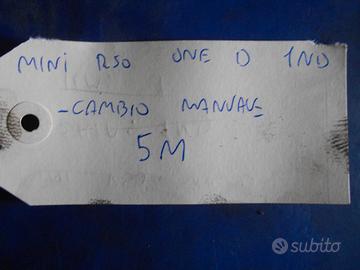 MINI R50 ONE D 1ND
-CAMBIO MANUALE
5M
subito